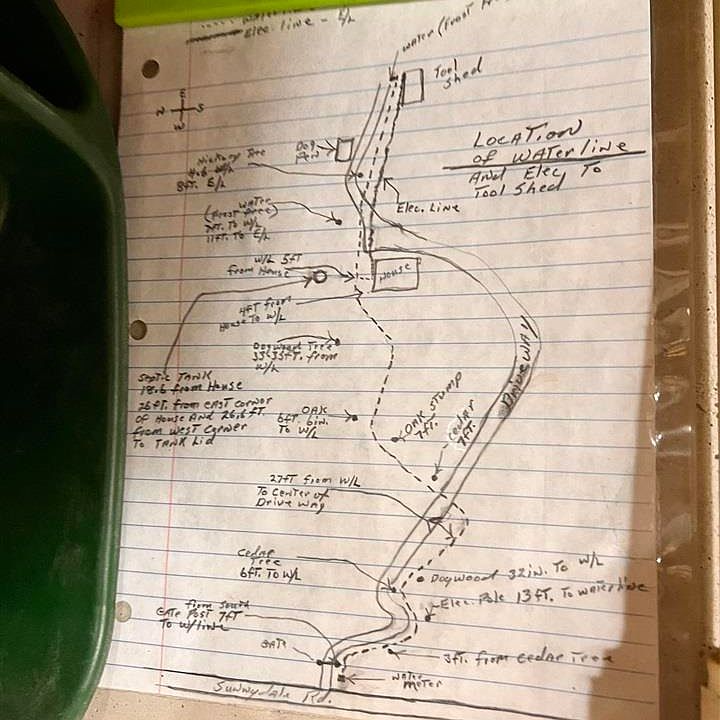 Elec. line - E/L
water (Frost
Tool
Shed
E
N S
W
LOCATION
of WATER line
And Elec To
Tool Shed
Dog
Pen
Hickory Tree
8ft. E/L
Elec. Line
water
(Frost free)
7ft. To W/L
11ft. To E/L
W/L 5ft
from House
House
4ft from
House To W/L
Driveway
Dogwood Tree
33.33ft. from
W/L
Septic Tank
18.6 from House
26ft. from East corner
of House And 26.6ft.
from west corner
To Tank Lid
OAK
6ft. 6in.
To W/L
OAK Stump
7ft.
Cedar
7ft.
27ft from W/L
To Center of
Drive Way
Cedar
Tree
6ft. To W/L
Dogwood 32in. To W/L
Elec. Pole 13ft. To waterline
from South
GATE Post 7ft
To w/line
GATE
3ft. from Cedar Tree
water
meter
Sunnydale Rd.